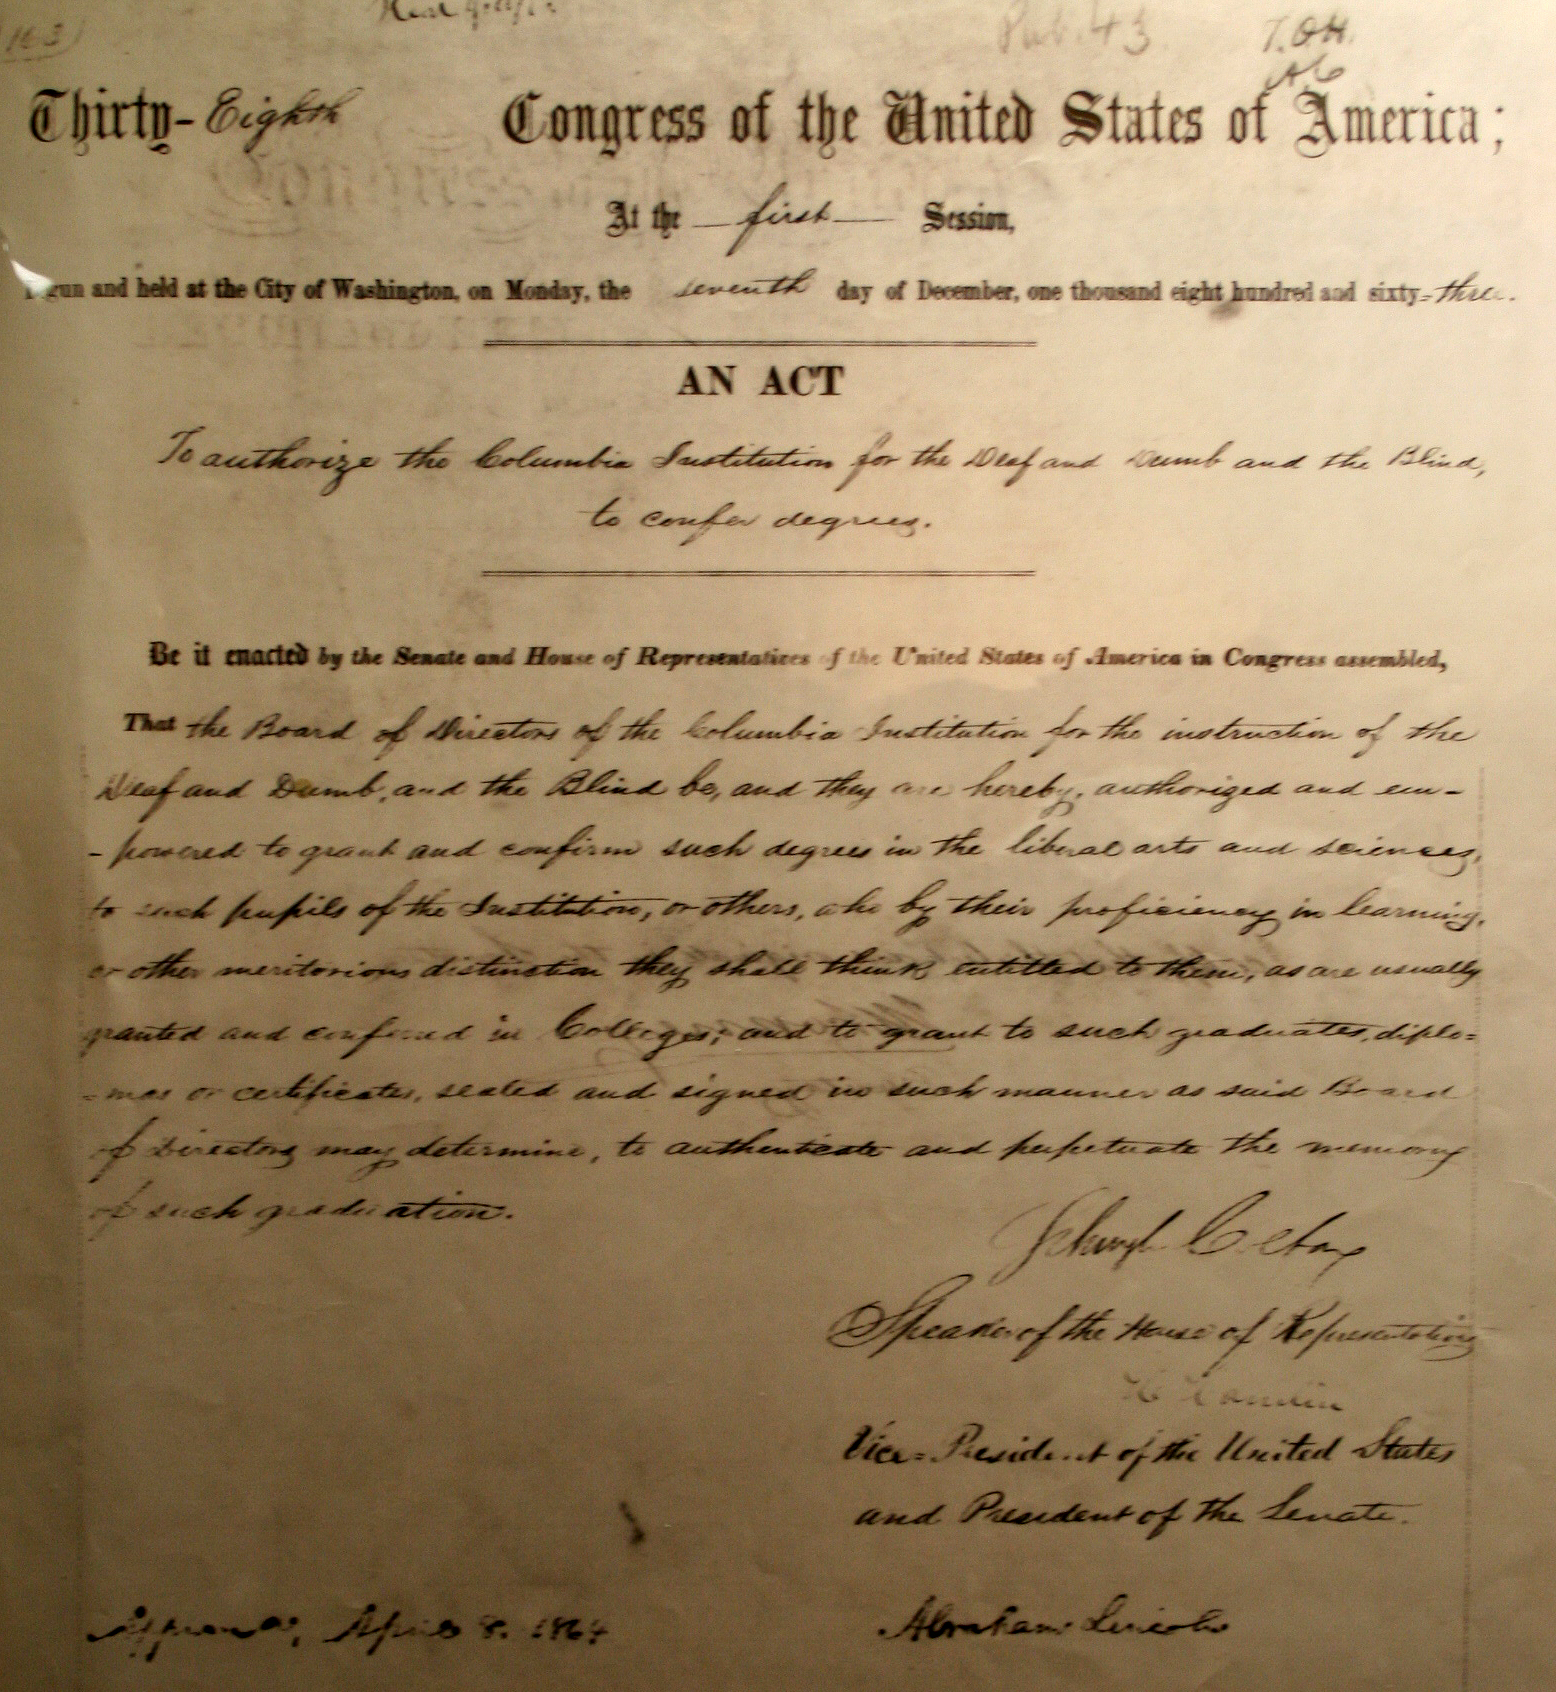 163
Pub. 43. T.O.H.
Thirty-Eighth Congress of the United States of America;
At the first Session,
gun and held at the City of Washington, on Monday, the seventh day of December, one thousand eight hundred and sixty-three.
AN ACT
To authorize the Columbia Institution for the Deaf and Dumb and the Blind,
to confer degrees.
Be it enacted by the Senate and House of Representatives of the United States of America in Congress assembled,
That the Board of Directors of the Columbia Institution for the instruction of the
Deaf and Dumb, and the Blind be, and they are hereby, authorized and em-
-powered to grant and confirm such degrees in the liberal arts and sciences,
to such pupils of the Institution, or others, who by their proficiency in learning,
or other meritorious distinction they shall think entitled to them, as are usually
granted and conferred in Colleges; and to grant to such graduates, diplo=
=mas or certificates, sealed and signed in such manner as said Board
of Directors may determine, to authenticate and perpetuate the memory
of such graduation.
Schuyler Colfax
Speaker of the House of Representatives
H Hamlin
Vice=President of the United States
and President of the Senate.
Approved, April 8. 1864 Abraham Lincoln